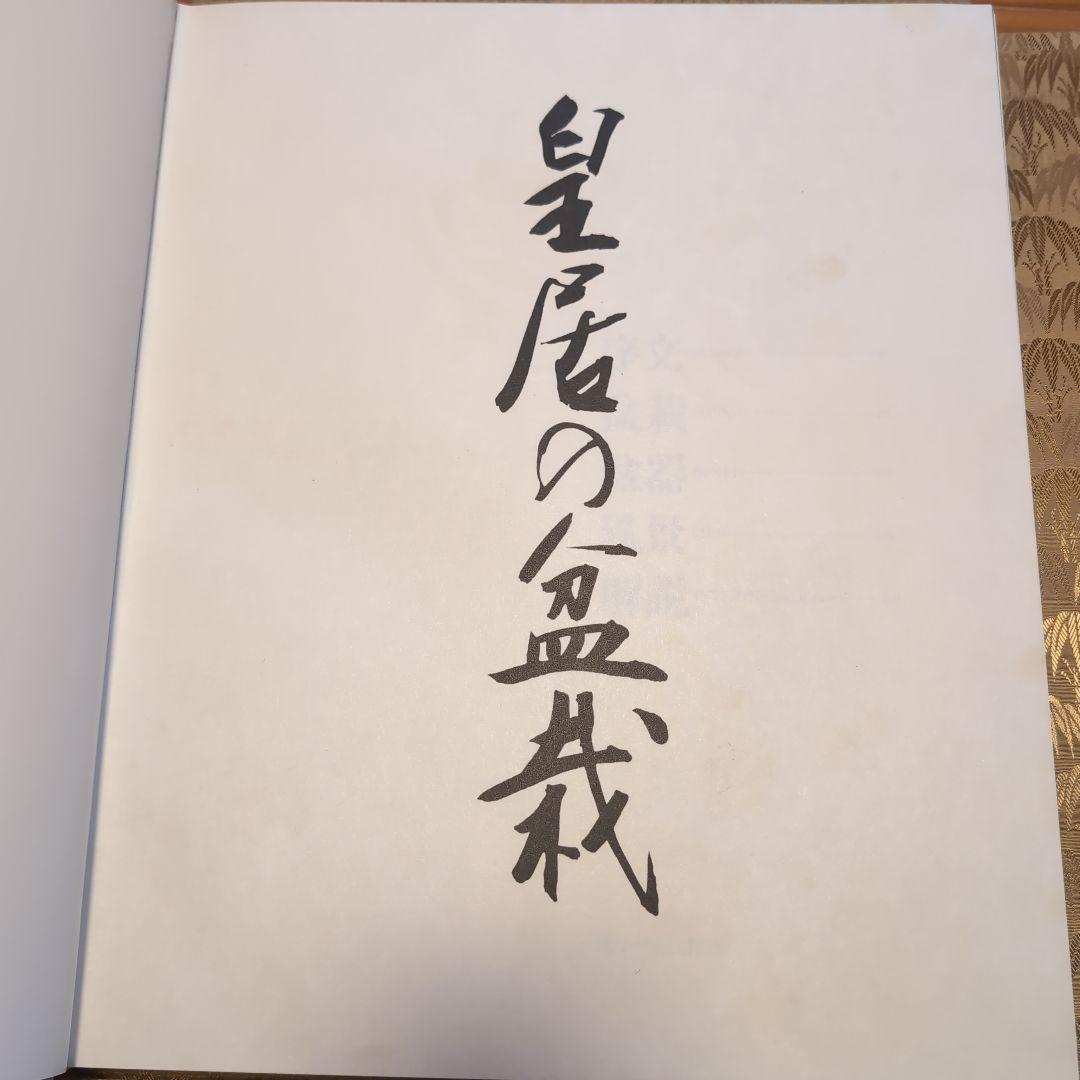 皇居の盆栽